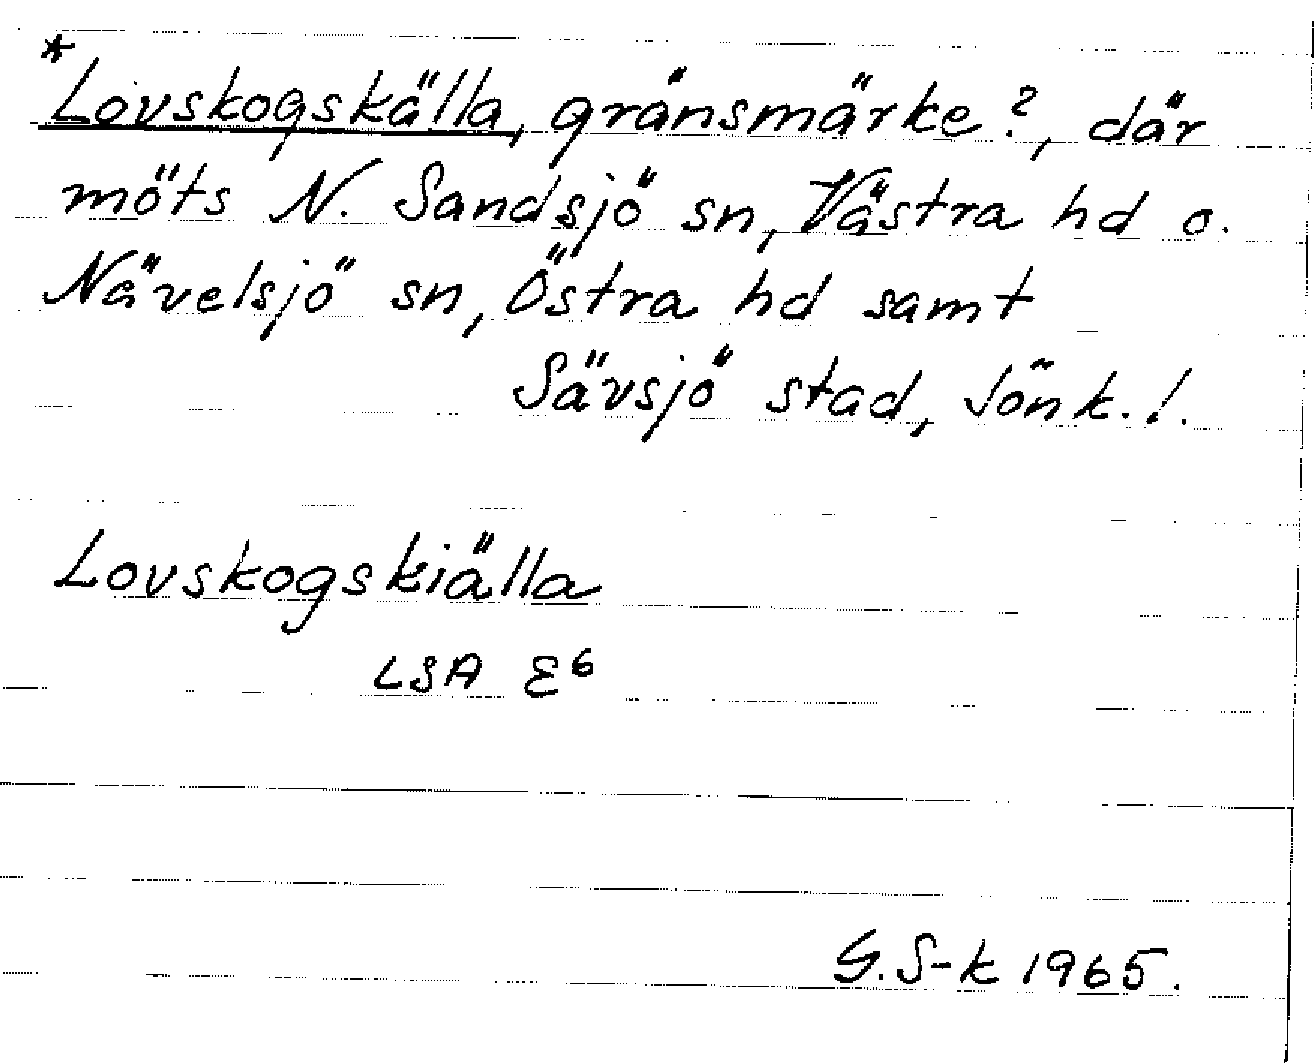 *Lovskogskälla, gränsmärke?, där
möts N. Sandsjö sn, Västra hd o.
Nävelsjö sn, Östra hd samt
Sävsjö stad, Jönk. l.
Lovskogskiälla
LSA E6
G. S-k 1965.